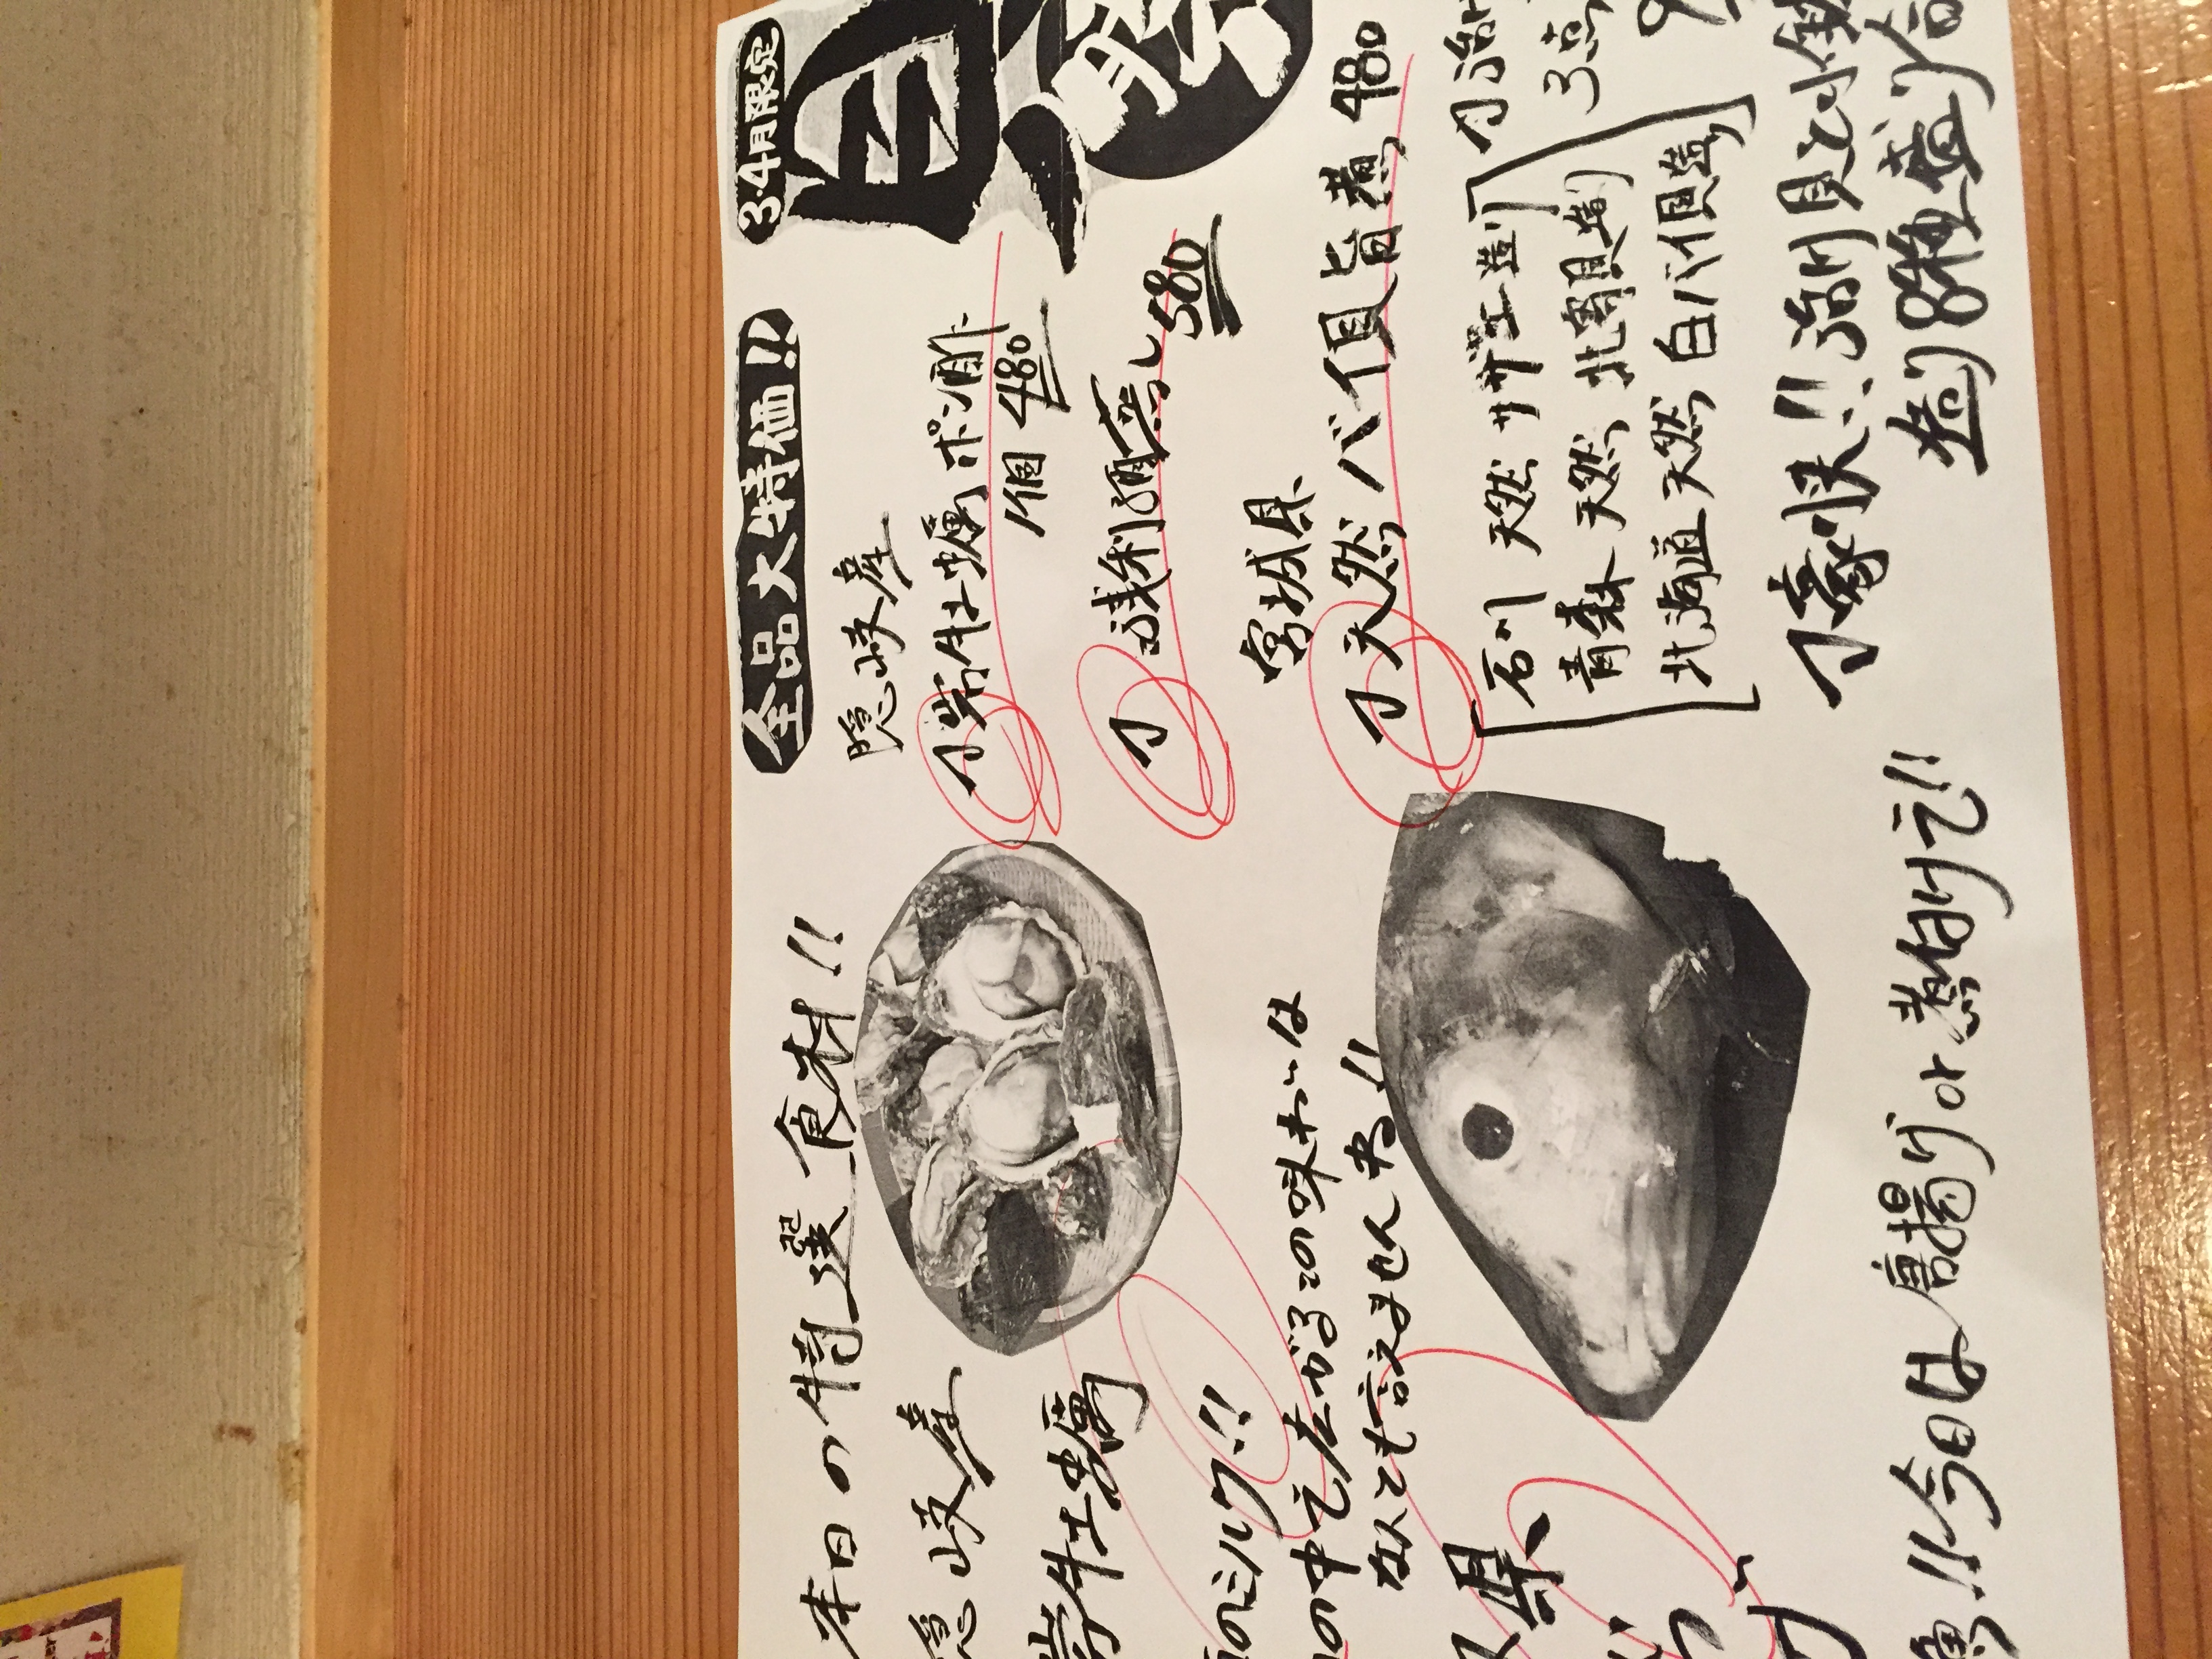 本日の特選食材!!
隠岐産
岩牡蠣
のミルク!!
の中で広がるこの味わいは
なんとも言えませんねっ!!
県
!!今日は唐揚げor煮付けで!!
全品大特価!!
3・4月限定
貝
隠岐産
岩牡蠣ポン酢
1個 480
浅利酒蒸し 580
宮城県
天然バイ貝旨煮 480
石川 天然 サザエ造り
青森 天然 北寄貝造り
北海道 天然 白バイ貝造り
活け
3点
豪快!!活け貝と小鉄
造り8種盛り合